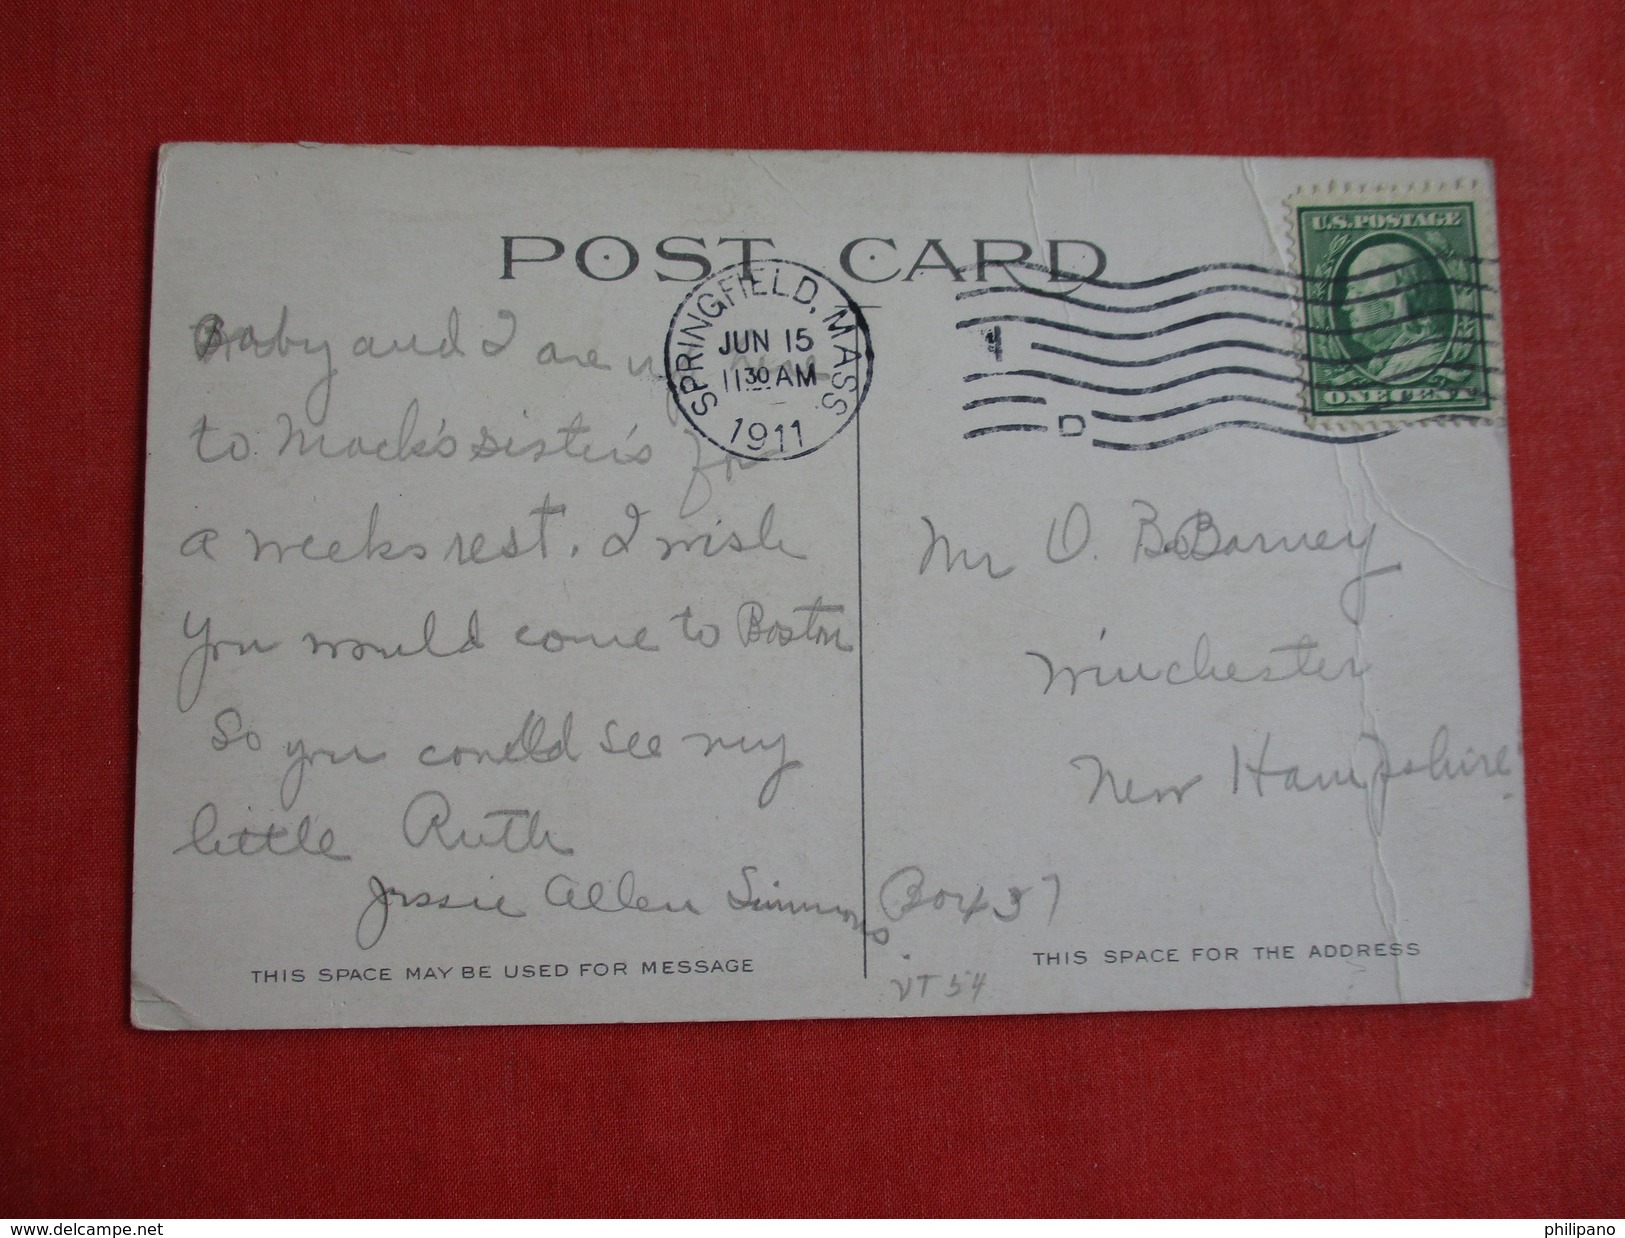 POST CARD
SPRINGFIELD, MASS.
JUN 15
11 30 AM
1911
1
D
U.S. POSTAGE
ONE CENT
Baby and I are up here
to Mack's sister's for
a weeks rest. I wish
you would come to Boston
So you could see my
little Ruth
Jessie Allen Simmons.
THIS SPACE MAY BE USED FOR MESSAGE
Mr O. B. Barney
Winchester
New Hampshire.
Box 37
VT 54
THIS SPACE FOR THE ADDRESS
www.delcampe.net
philipano